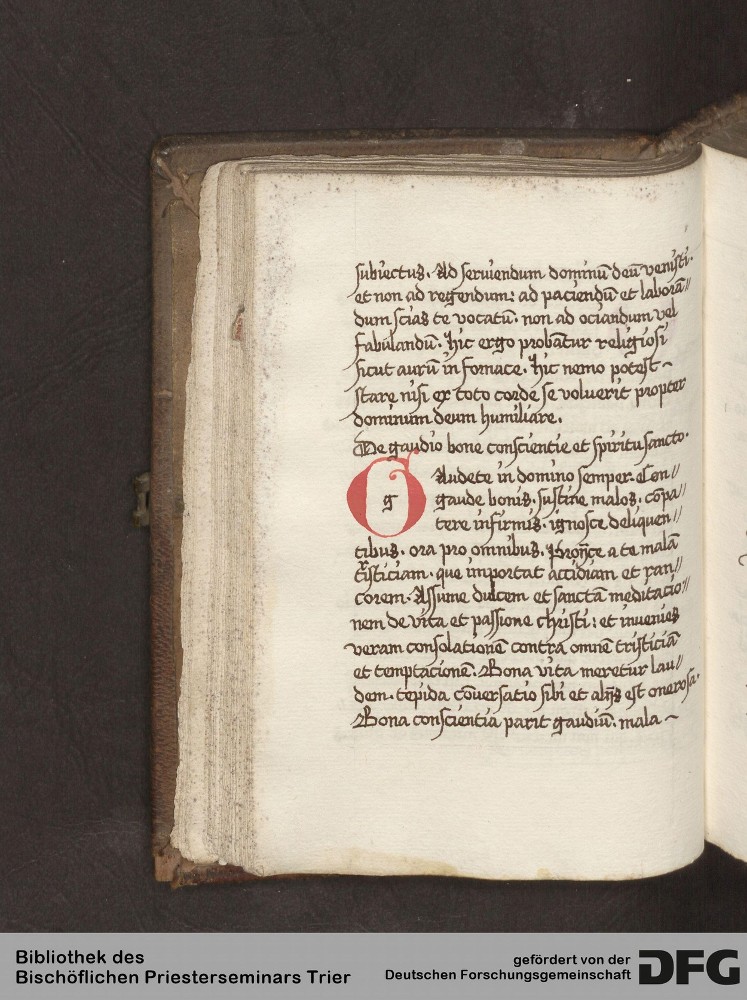 subiectus. Ad seruiendum dominū deū venisti.
et non ad regendum: ad paciendū et laborā//
dum scias te vocatū. non ad ociandum vel
fabulandū. Hic ergo probātur religiosi
sicut aurū in fornace. Hic nemo potest ~
stare nisi ex toto corde se voluerit propter
dominum deum humiliare.
De gaudio bone conscientie et spiritu sancto.
G g Audete in domino semper. Con//
gaude bonis. sustine malos. cōpa//
tere infirmis. ignosce deliquen//
tibus. ora pro omnibus. Proiice a te malā
tristiciam. que importat accidiam et ran//
corem. Assume dulcem et sanctā meditacio//
nem de vita et passione christi: et invenies
veram consolationē contra omnē tristiciā
et temptacionē. Bona vita meretur lau//
dem. tepida cōuersatio sibi et aliis est onerosa.
Bona conscientia parit gaudiū. mala ~
Bibliothek des
Bischöflichen Priesterseminars Trier
gefördert von der
Deutschen Forschungsgemeinschaft
DFG